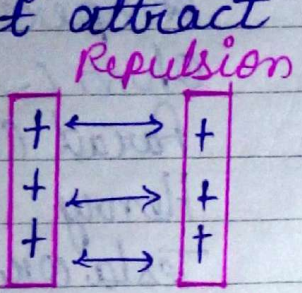 attract
Repulsion
+ ←→ +
+ ←→ +
+ ←→ +